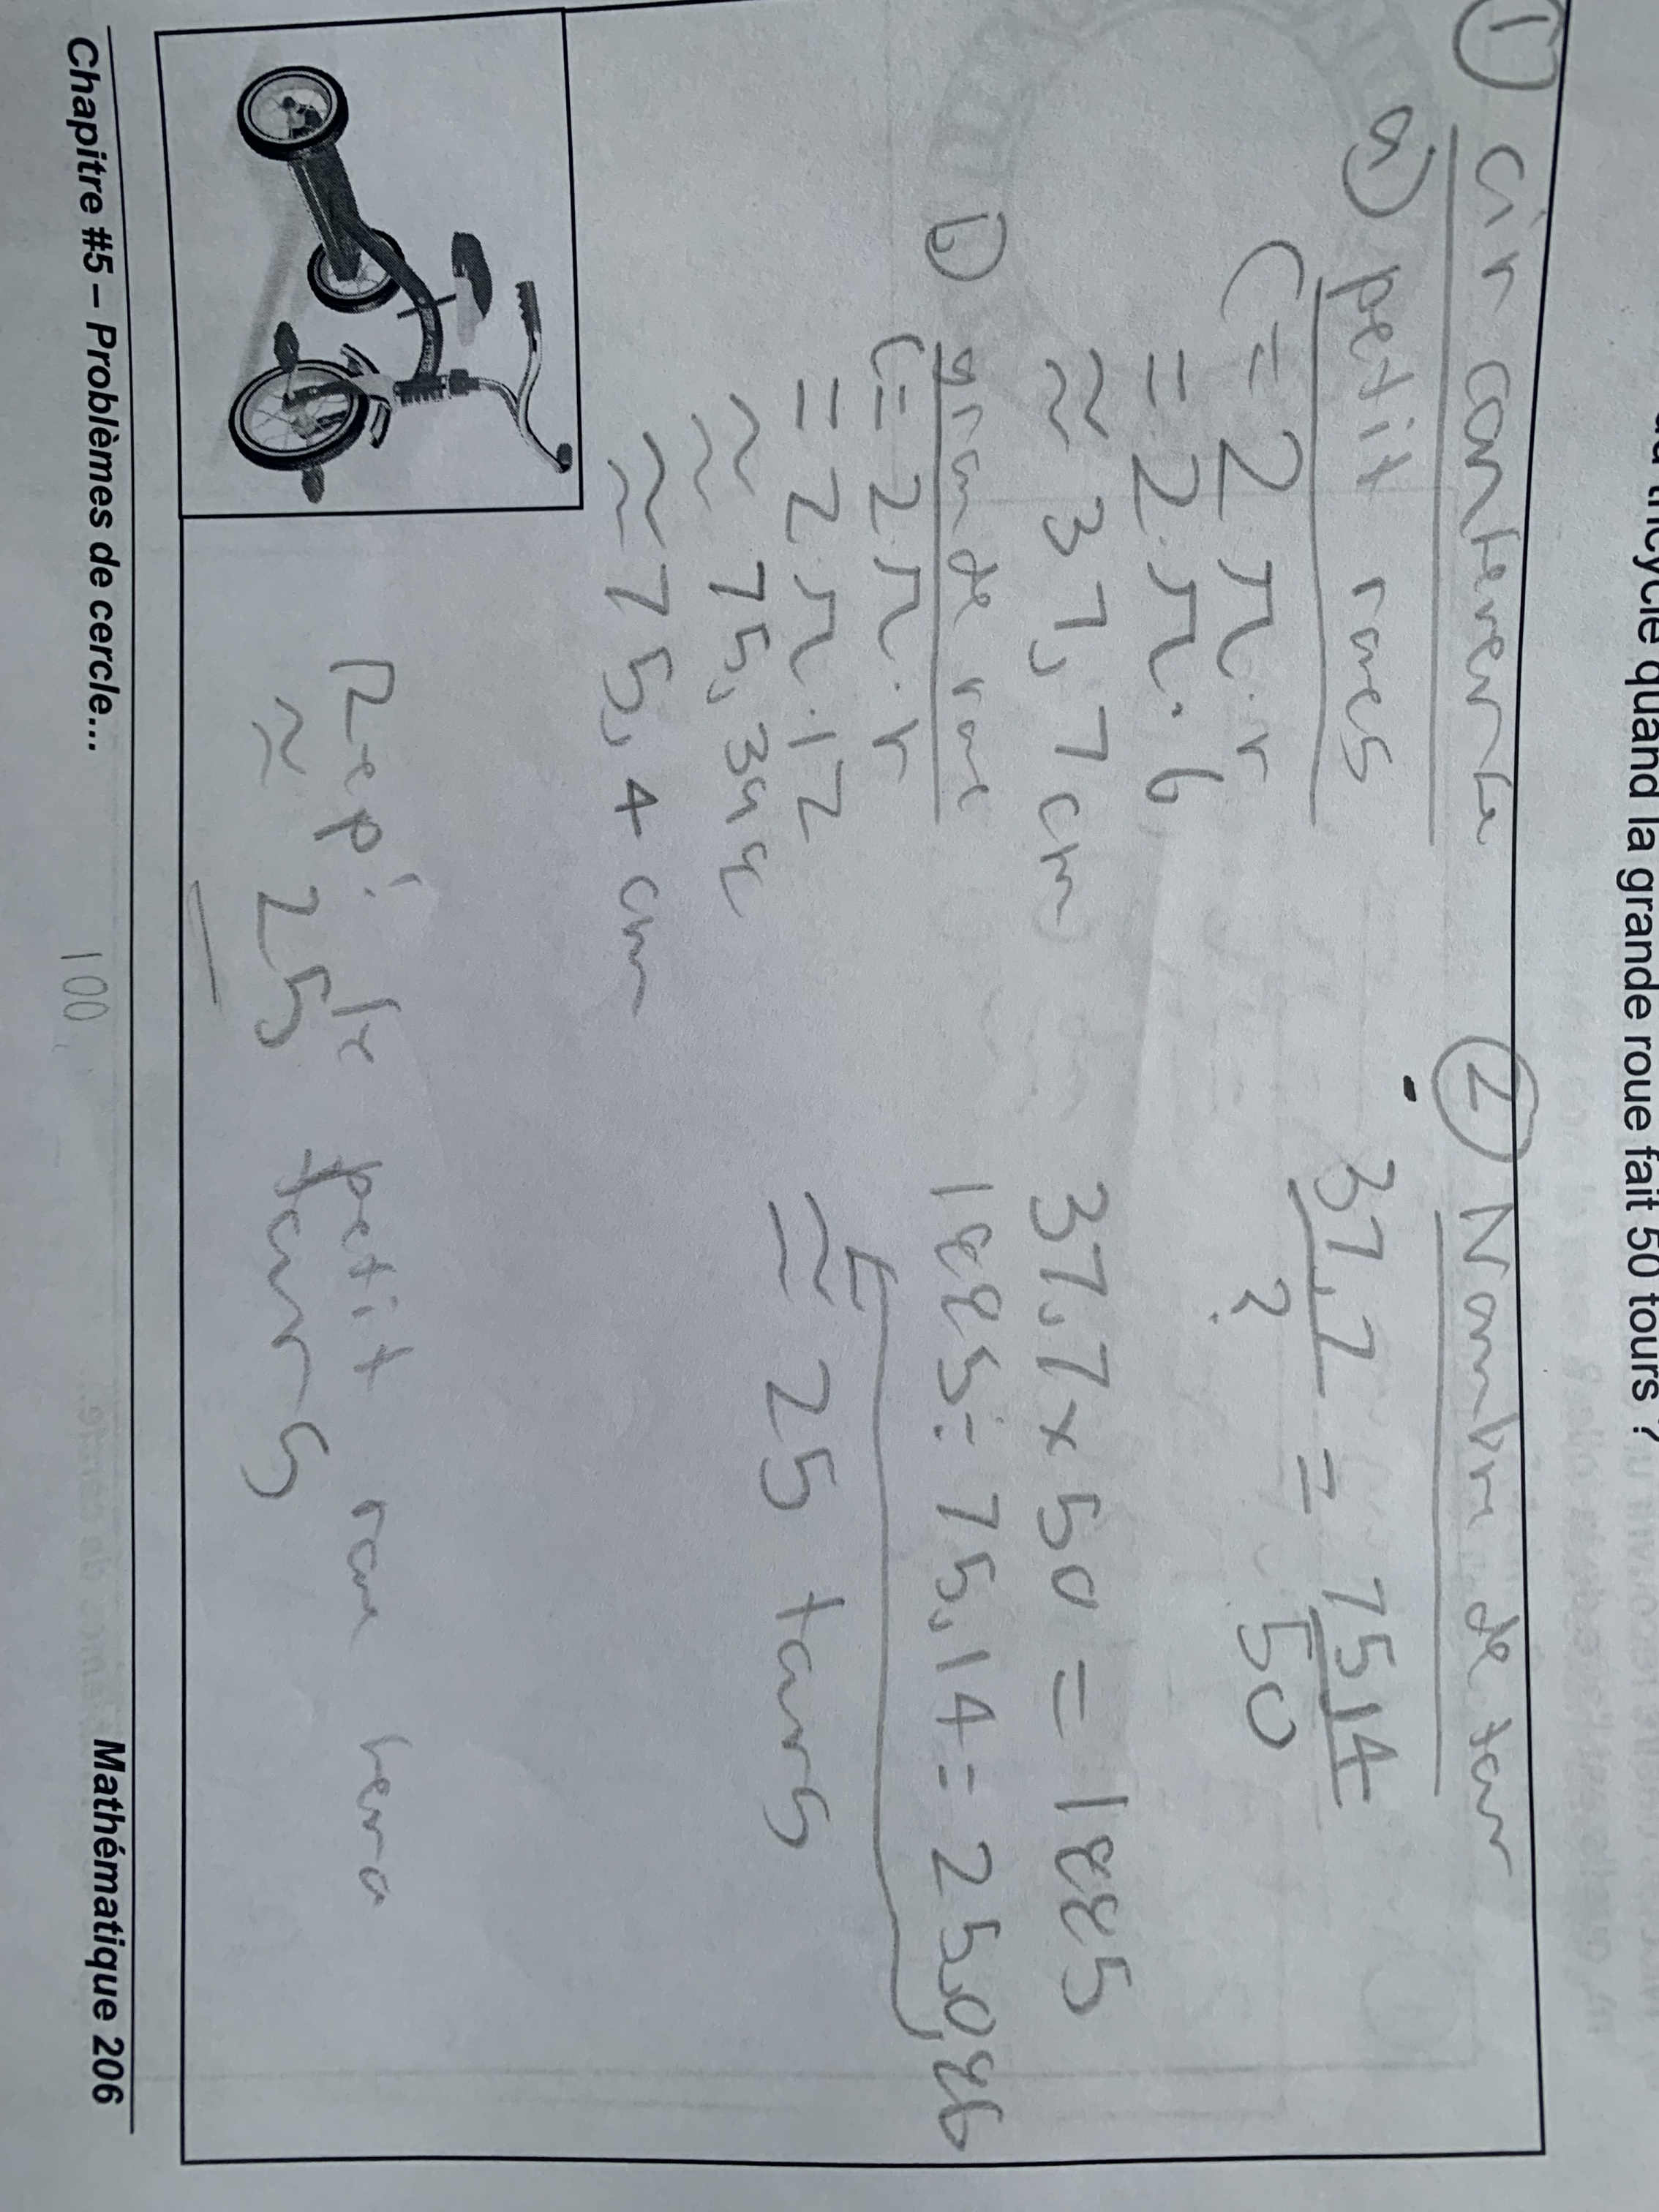 du tricycle quand la grande roue fait 50 tours ?
① circonference
a) petit roues
C = 2π·r
= 2·π·6
≈ 37,7 cm
b) grande roue
C = 2π·r
= 2·π·12
≈ 75,398
≈ 75,4 cm
② Nombre de tour
37,7 = 7514
? 50
37,7 x 50 = 1885
1885 ÷ 75,14 = 25,086
≈ 25 tours
Rep: le petit roue fera
≈ 25 tours
Chapitre #5 – Problèmes de cercle...
100
Mathématique 206